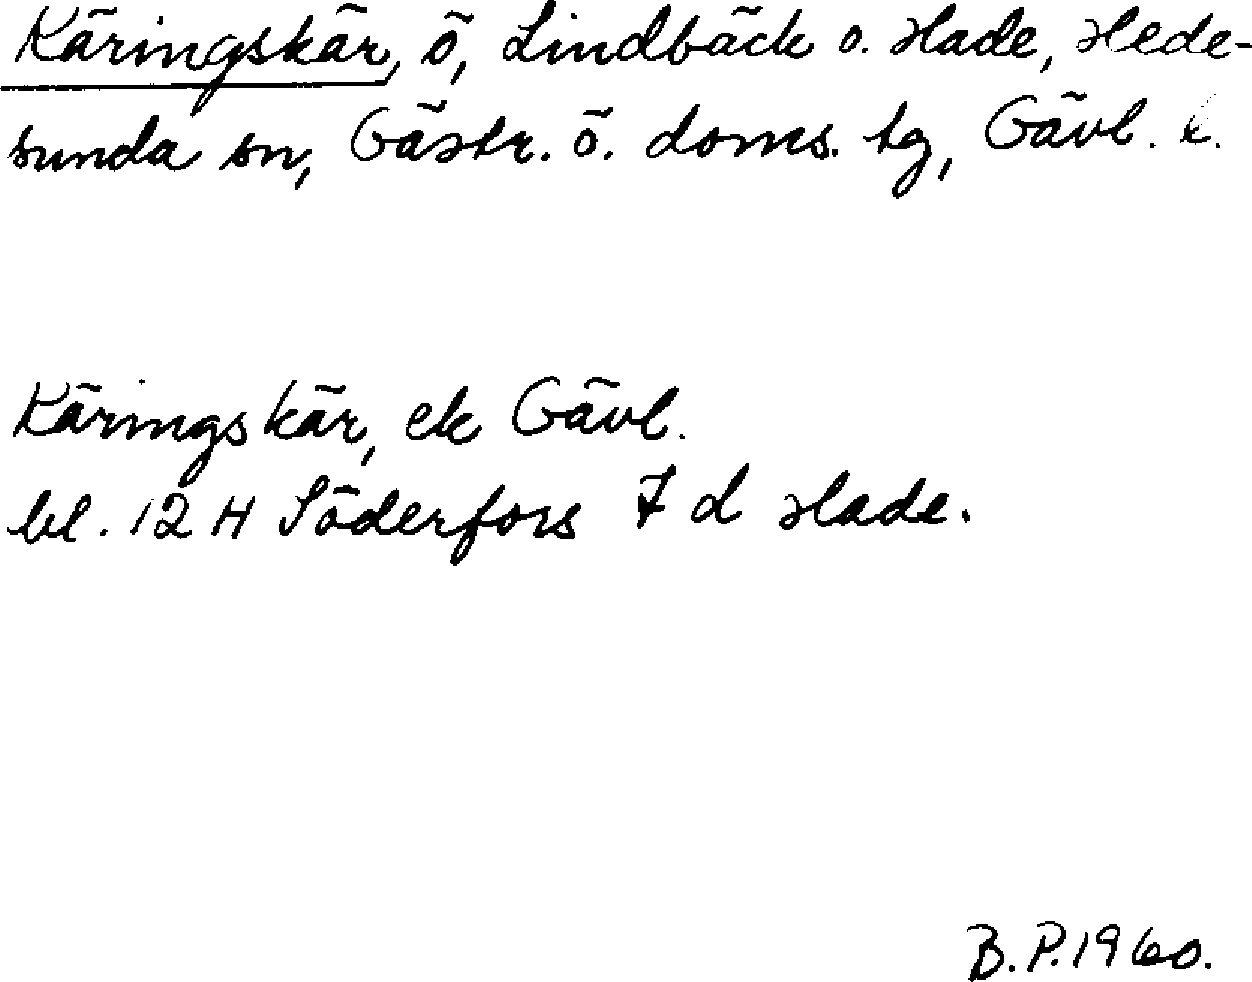 Käringskär, ö, Lindbäck o. Hade, Hede-
sunda sn, Gästr. ö. doms. tg, Gävl. l.
Käringskär, ek Gävl.
bl. 12 H Söderfors 7 d Hade.
B.P.1960.